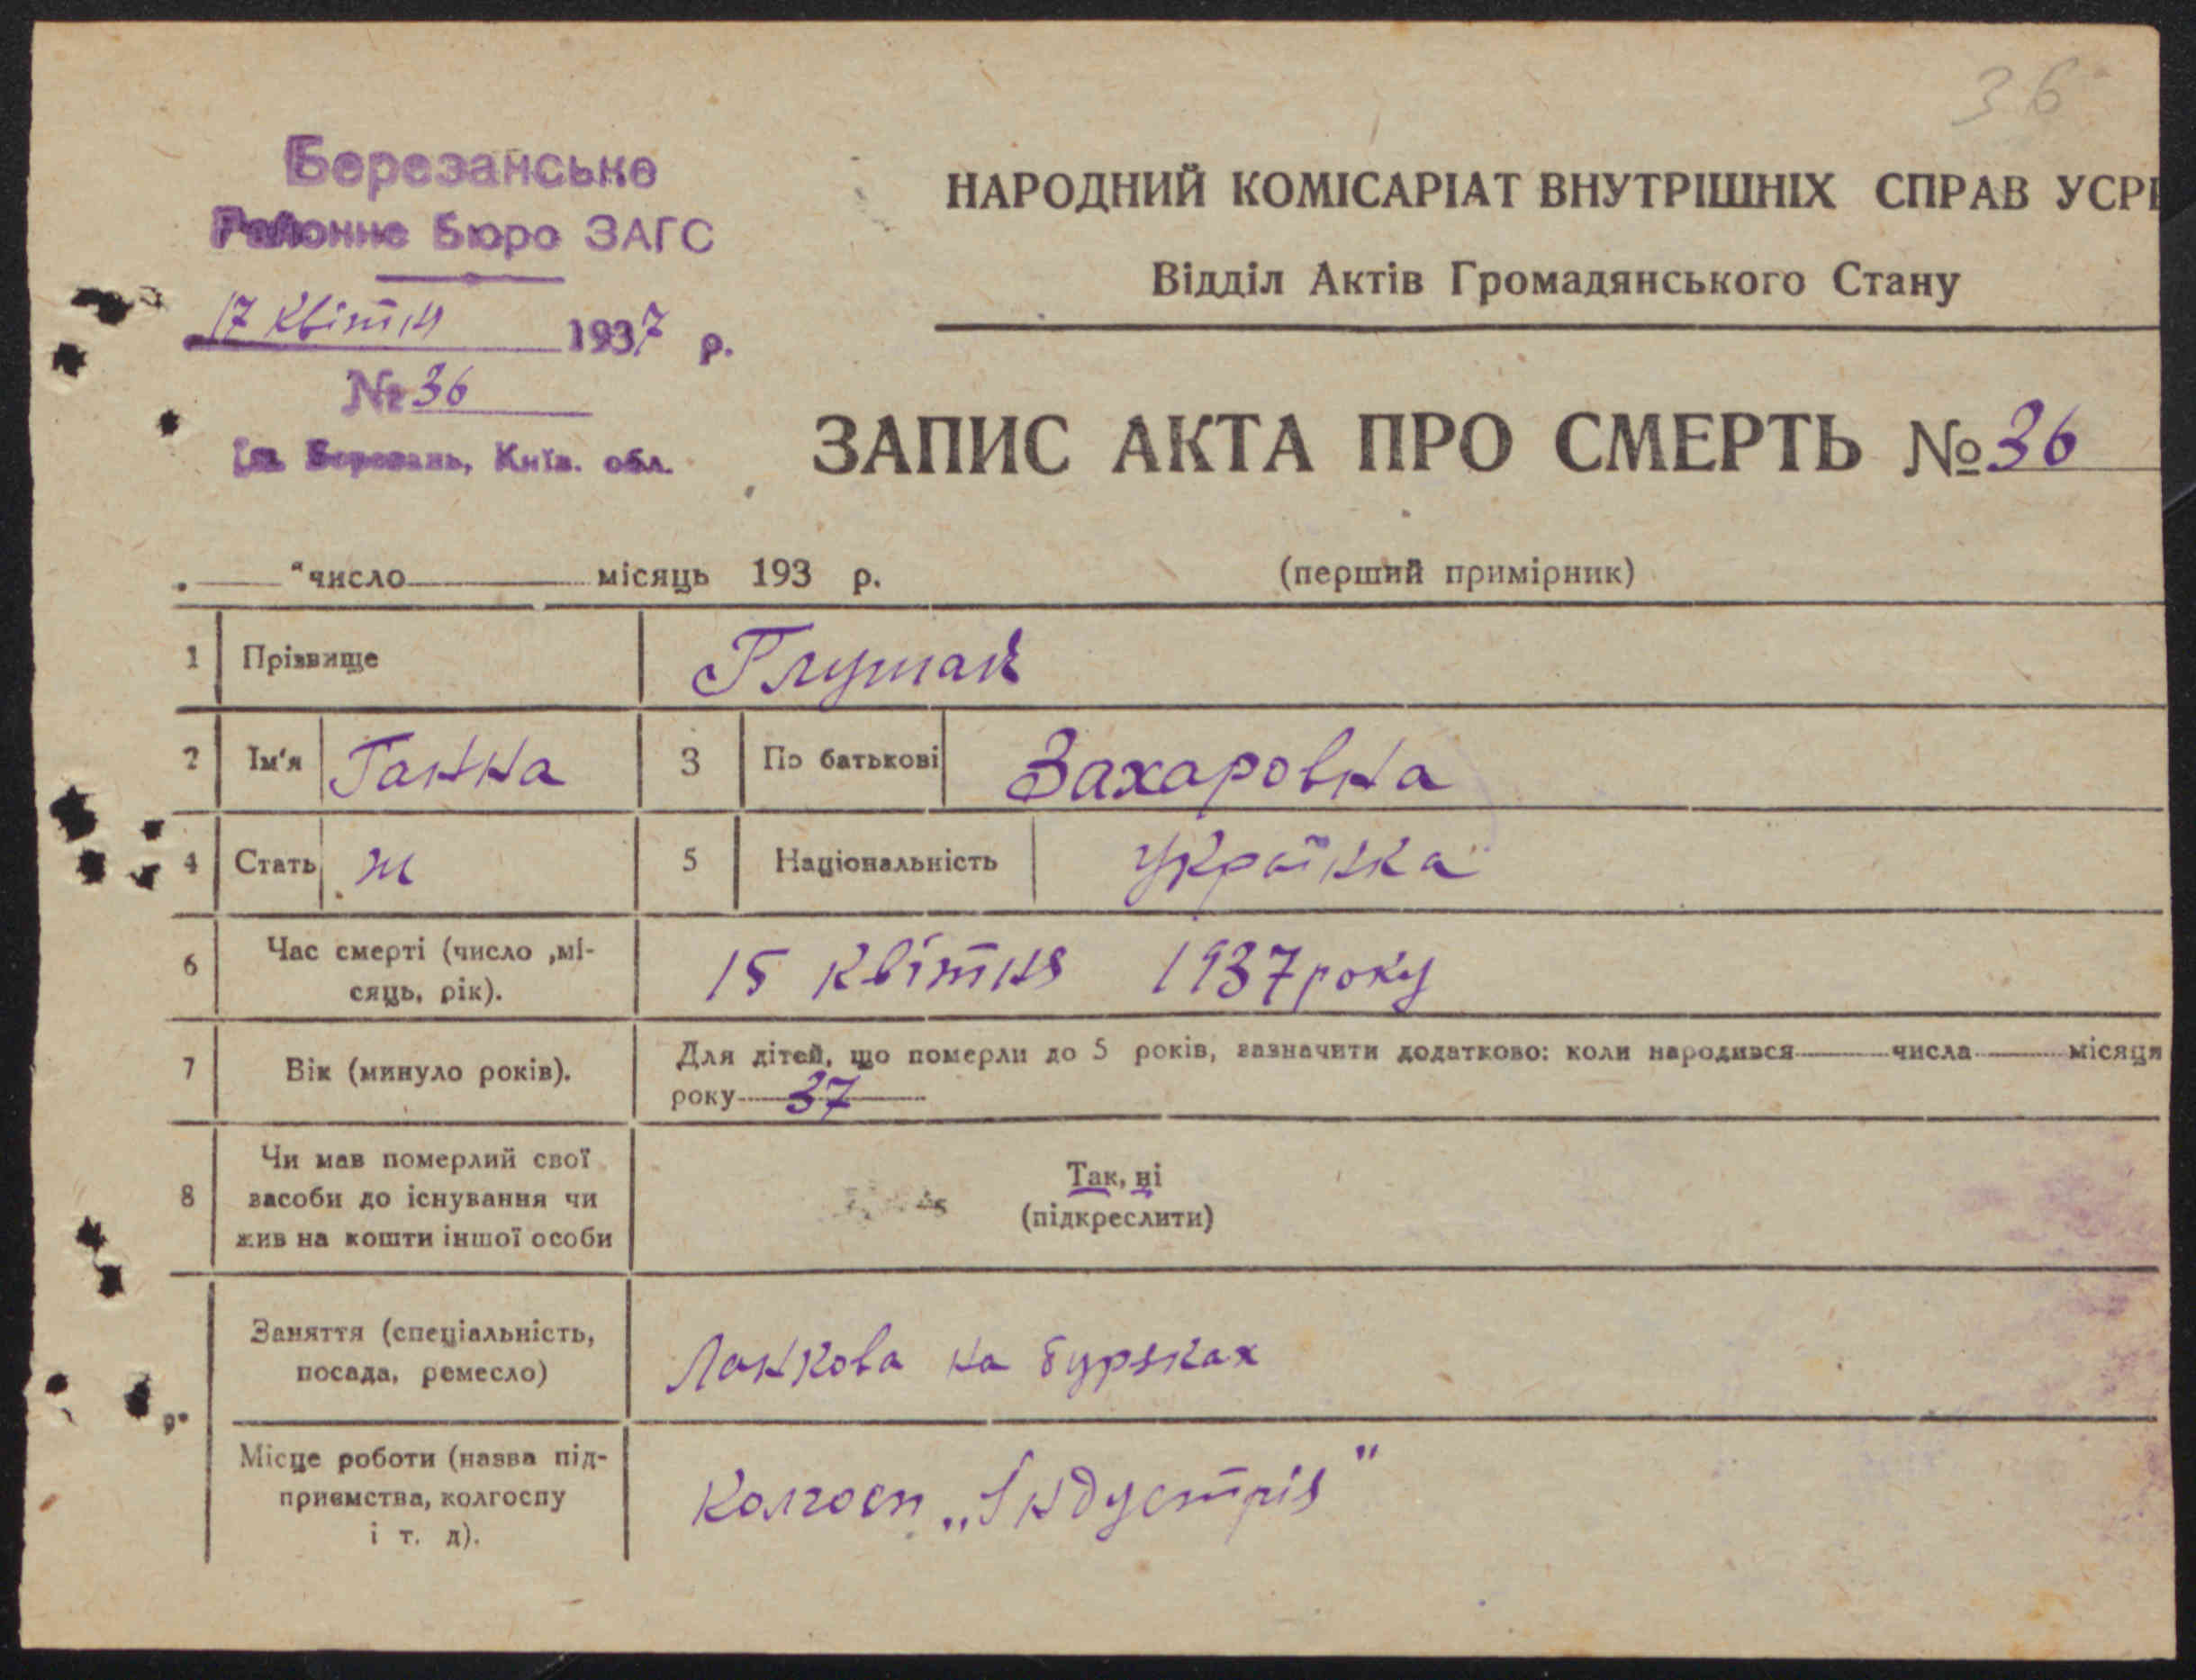 36
Березанське
Районне Бюро ЗАГС
17 квітня 1937 р.
№ 36
Березань, Київ. обл.
НАРОДНИЙ КОМІСАРІАТ ВНУТРІШНІХ СПРАВ УСРР
Відділ Актів Громадянського Стану
ЗАПИС АКТА ПРО СМЕРТЬ № 36
„ “ число місяць 193 р.
(перший примірник)
1 Прізвище Глушак
2 Ім'я Ганна 3 По батькові Захаровна
4 Стать ж 5 Національність Українка
6 Час смерті (число ,мі-
сяць, рік). 15 квітня 1937 року
7 Вік (минуло років). Для дітей, що померли до 5 років, зазначити додатково: коли народився числа місяця
року 37
8 Чи мав померлий свої
засоби до існування чи
жив на кошти іншої особи
Так, ні
(підкреслити)
9. Заняття (спеціальність,
посада, ремесло) Ланкова на буряках
Місце роботи (назва під-
приємства, колгоспу
і т. д). Колгосп „Індустрія"